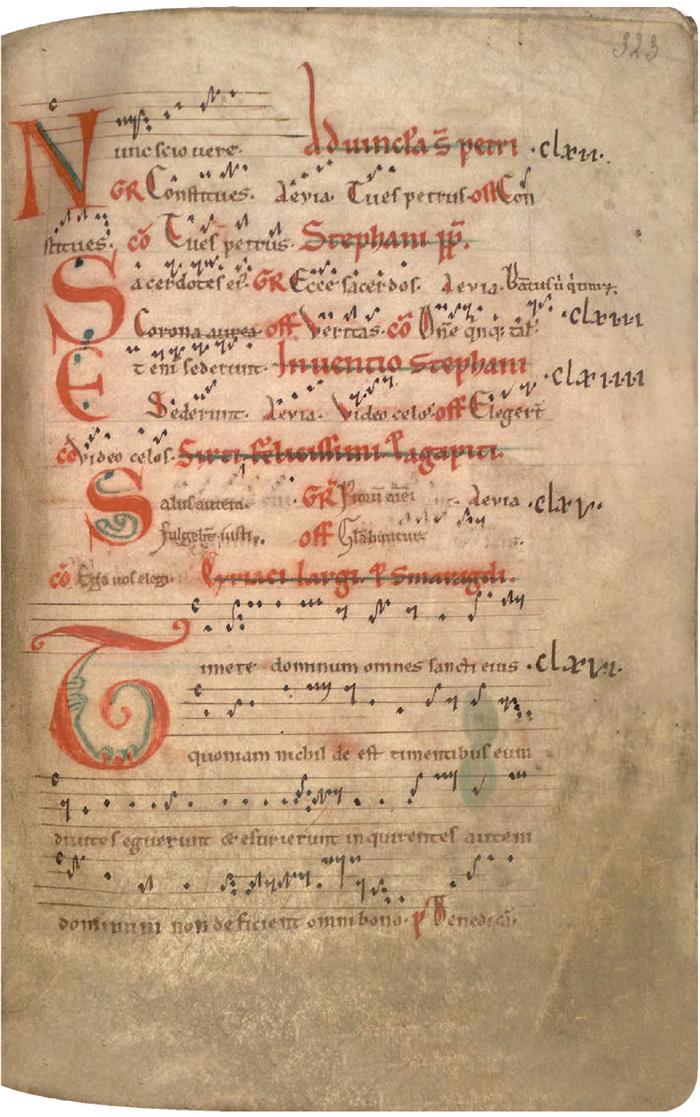 323
Nunc scio uere. Ad uincła s̄ petri .clxii.
GR Constitues. Aeuia. Tu es petrus. off Con
stitues. cō Tu es petrus. Stephani pp̄.
Sacerdotes ei. GR Ecce sacerdos. Aeuia.
Corona aurea off Veritas. cō .clxiii
Eteni sederunt. Inuentio Stephani .clxiiii
Sederunt. Aeuia. Video celos. off Elegerт̄
cō Video celos. Sixti felicissimi Agapiti.
Salus autem. GR Aeuia .clxv.
fulgebt̄ iusti. off
cō Ego uos elegi. Cyriaci largi & Smaragdi.
Timete dominum omnes sancti eius .clxvi.
quoniam nichil de est timentibus eum
diuites eguerunt & esurierunt inquirentes autem
dominum non deficient omni bono. ps Benedicā.